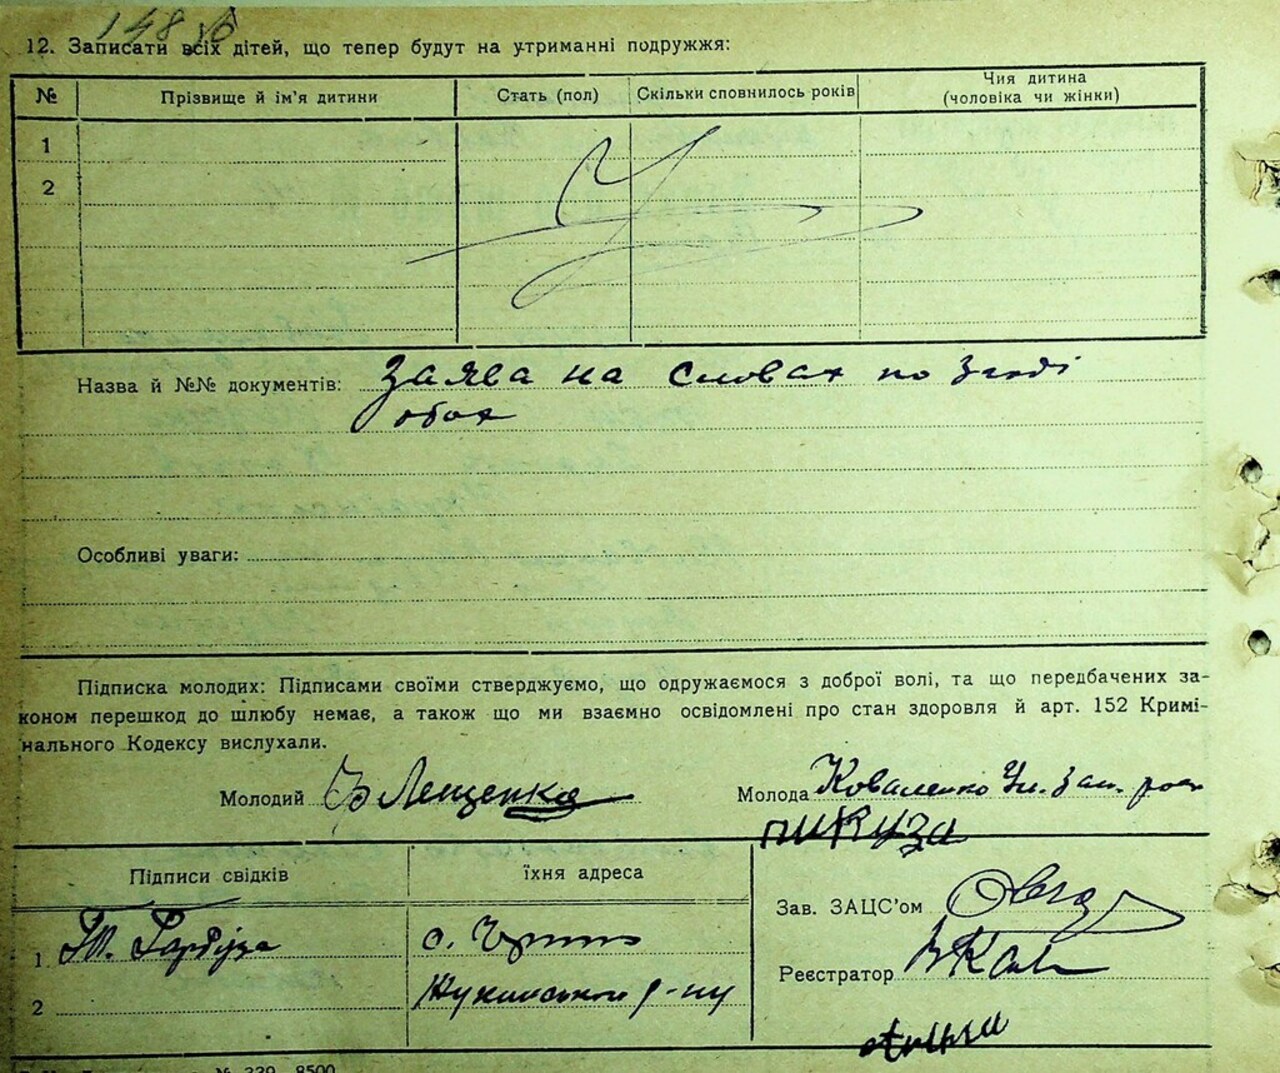 148
12. Записати всіх дітей, що тепер будут на утриманні подружжя:
№ Прізвище й ім'я дитини Стать (пол) Скільки сповнилось років Чия дитина
(чоловіка чи жінки)
1
2
Назва й №№ документів: Заява на словах по згоді
обох
Особливі уваги:
Підписка молодих: Підписами своїми стверджуємо, що одружаємося з доброї волі, та що передбачених за-
коном перешкод до шлюбу немає, а також що ми взаємно освідомлені про стан здоровля й арт. 152 Кримі-
нального Кодексу вислухали.
Молодий Лещенко
Молода Коваленко
Підписи свідків їхня адреса
Зав. ЗАЦС'ом
1 Гарбуза с.
Реєстратор
2 р-ну
№ 339 8500